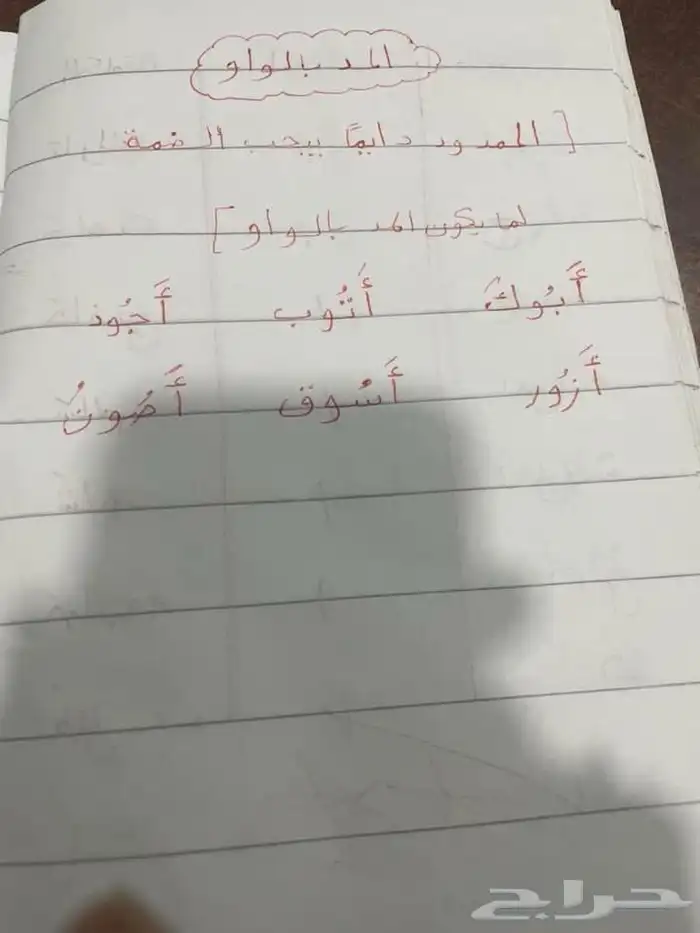 المد بالواو
[ الممدود دايمًا يحب الضمة
لما يكون المد بالواو ]
أَبُوكَ أَتُوب أَجُوذ
أَزُور أَسُوق أَصُونُ
حراج